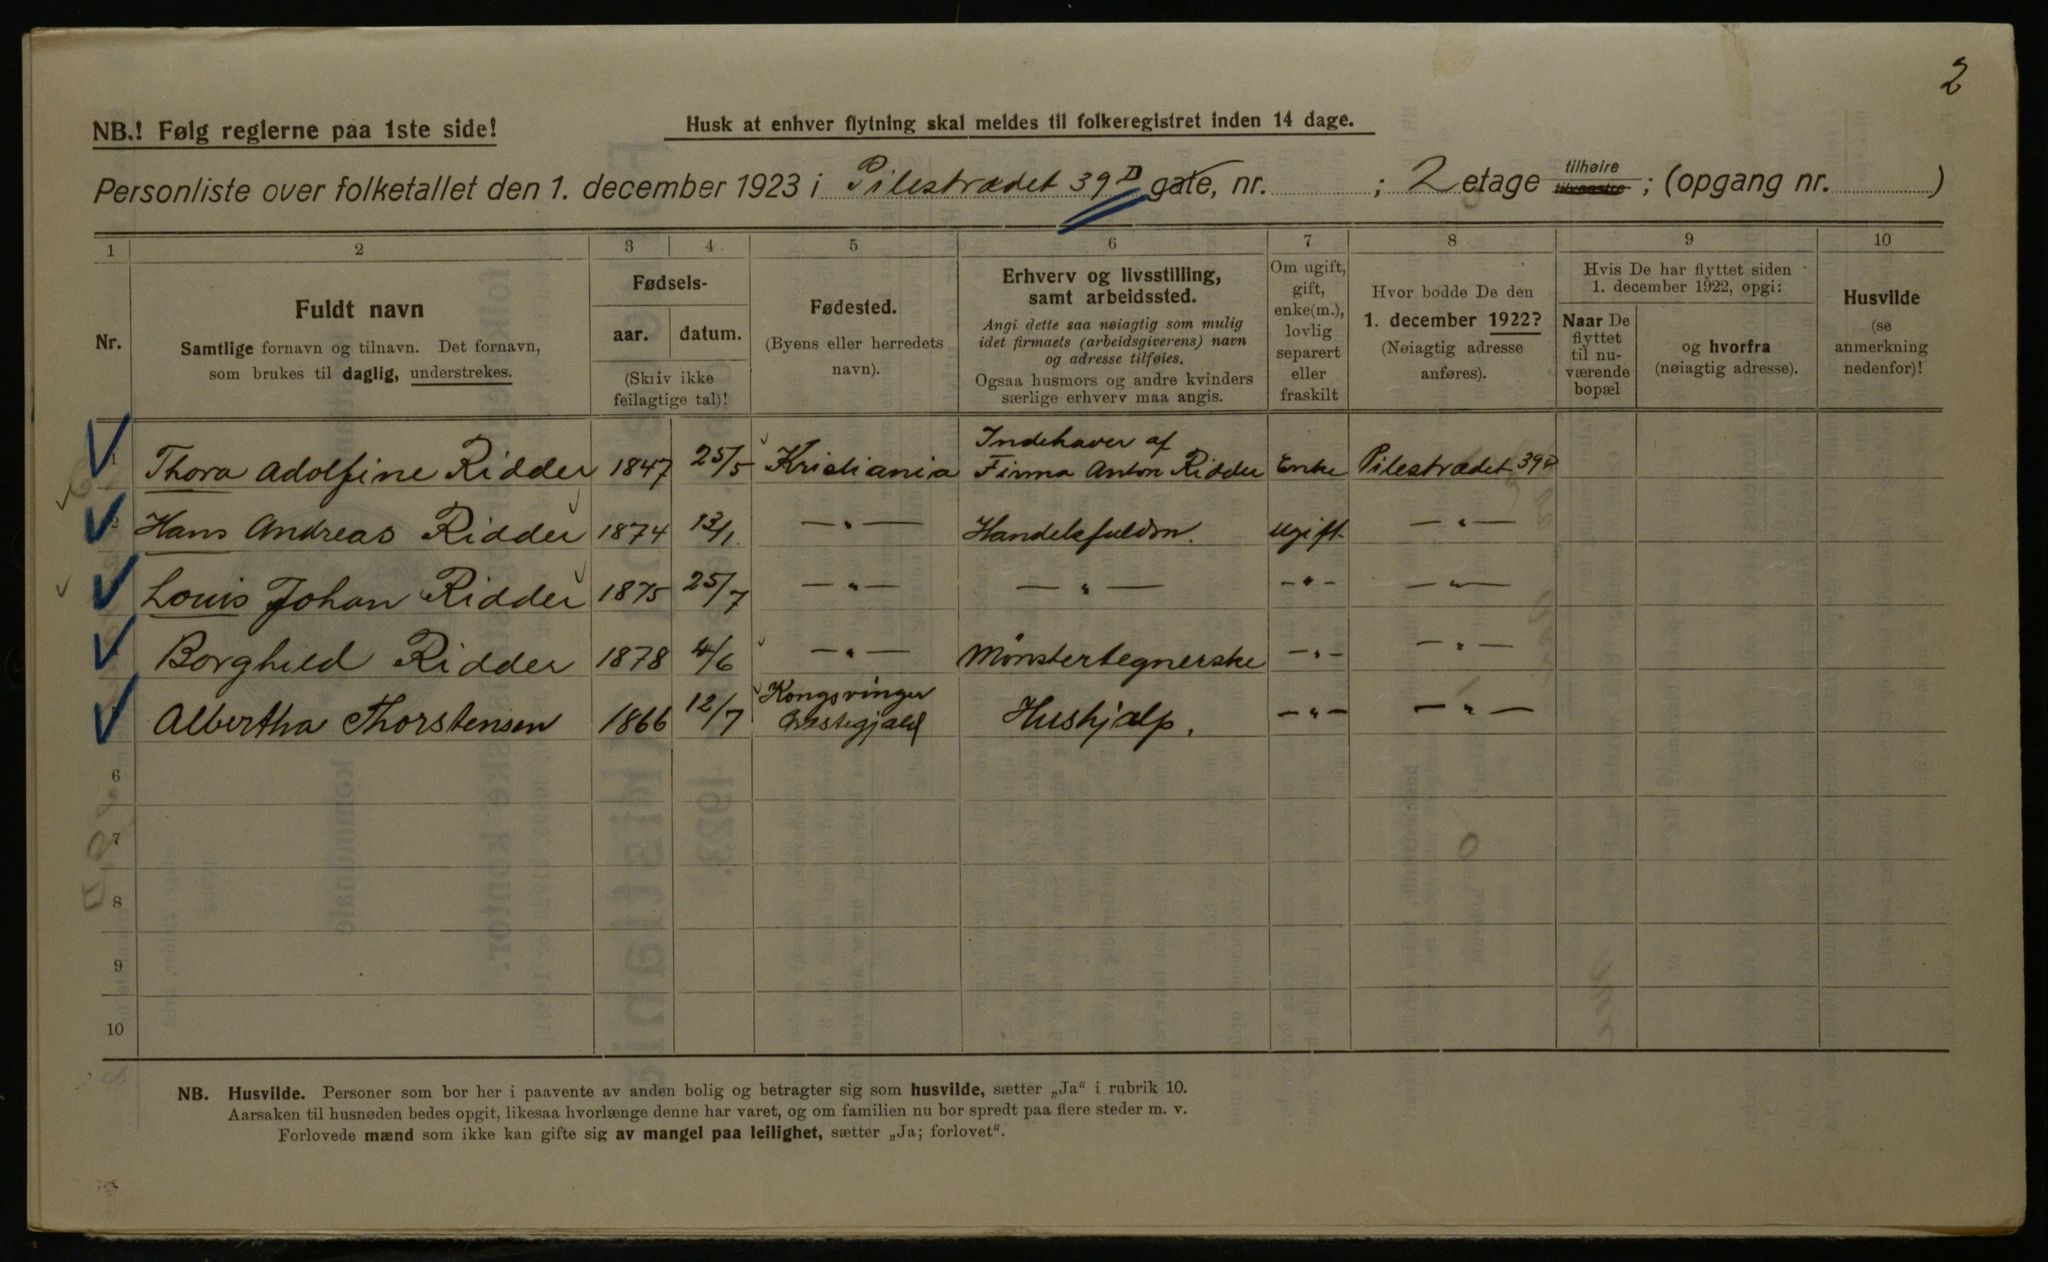 2
NB.! Følg reglerne paa 1ste side!
Husk at enhver flytning skal meldes til folkeregistret inden 14 dage.
Personliste over folketallet den 1. december 1923 i Pilestrædet 39D gate, nr. ; 2 etage tilhøire tilvenstre ; (opgang nr. )
1 2 3 4 5 6 7 8 9 10
Nr.
Fuldt navn
Samtlige fornavn og tilnavn. Det fornavn,
som brukes til daglig, understrekes.
Fødsels-
aar. datum.
(Skriv ikke
feilagtige tal)!
Fødested.
(Byens eller herredets
navn).
Erhverv og livsstilling,
samt arbeidssted.
Angi dette saa nøiagtig som mulig
idet firmaets (arbeidsgiverens) navn
og adresse tilføies.
Ogsaa husmors og andre kvinders
særlige erhverv maa angis.
Om ugift,
gift,
enke(m.),
lovlig
separert
eller
fraskilt
Hvor bodde De den
1. december 1922?
(Nøiagtig adresse
anføres).
Hvis De har flyttet siden
1. december 1922, opgi:
Naar De
flyttet
til nu-
værende
bopæl
og hvorfra
(nøiagtig adresse).
Husvilde
(se
anmerkning
nedenfor)!
1 Thora Adolfine Ridder 1847 25/5 Kristiania Indehaver af
Firma Anton Ridder Enke Pilestrædet 39D
2 Hans Andreas Ridder 1874 13/1 — " — Handelsfuldm. Ugift — " —
Louis Johan Ridder 1875 25/7 — " — — " — — " — — " —
Borghild Ridder 1878 4/6 — " — Mønstertegnerske — " — — " —
Albertha Thorstensen 1866 12/7 Kongsvinger
Prestegjæld Hushjælp. — " — — " —
6
7
8
9
10
NB. Husvilde. Personer som bor her i paavente av anden bolig og betragter sig som husvilde, sætter „Ja“ i rubrik 10.
Aarsaken til husnøden bedes opgit, likesaa hvorlænge denne har varet, og om familien nu bor spredt paa flere steder m. v.
Forlovede mænd som ikke kan gifte sig av mangel paa leilighet, sætter „Ja; forlovet“.